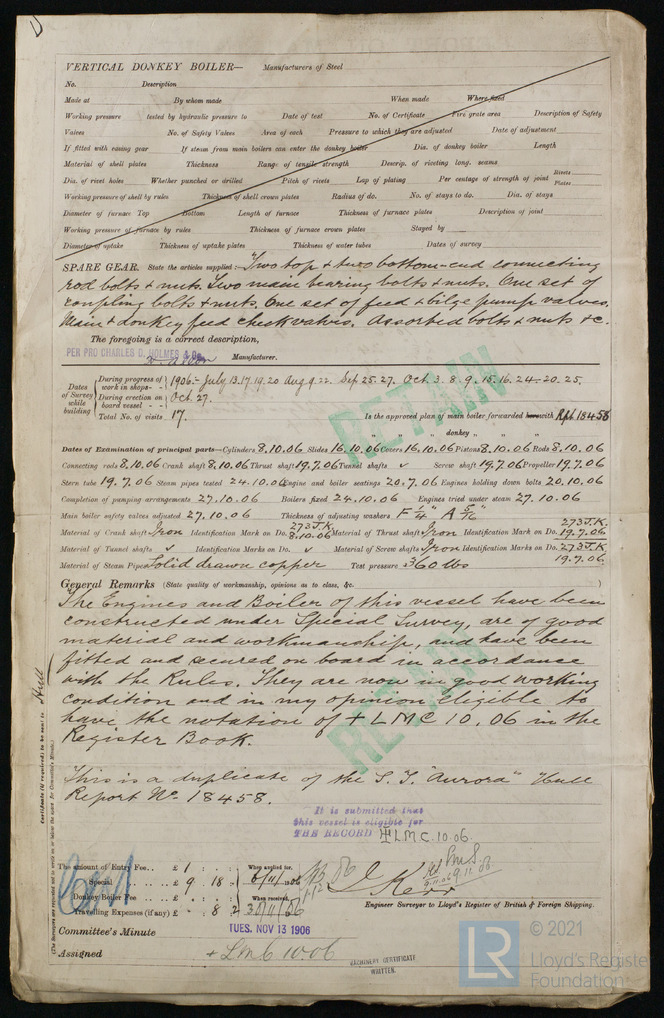 VERTICAL DONKEY BOILER— Manufacturers of Steel
No. Description
Made at By whom made When made Where fixed
Working pressure tested by hydraulic pressure to Date of test No. of Certificate Fire grate area Description of Safety
Valves No. of Safety Valves Area of each Pressure to which they are adjusted Date of adjustment
If fitted with easing gear If steam from main boilers can enter the donkey boiler Dia. of donkey boiler Length
Material of shell plates Thickness Range of tensile strength Descrip. of riveting long. seams
Dia. of rivet holes Whether punched or drilled Pitch of rivets Lap of plating Per centage of strength of joint Rivets Plates
Working pressure of shell by rules Thickness of shell crown plates Radius of do. No. of stays to do. Dia. of stays
Diameter of furnace Top Bottom Length of furnace Thickness of furnace plates Description of joint
Working pressure of furnace by rules Thickness of furnace crown plates Stayed by
Diameter of uptake Thickness of uptake plates Thickness of water tubes Dates of survey
SPARE GEAR. State the articles supplied:— Two top & two bottom-end connecting
rod bolts & nuts. Two main bearing bolts & nuts. One set of
coupling bolts & nuts. One set of feed & bilge pump valves.
Main & donkey feed check valves. Assorted bolts & nuts &c.
The foregoing is a correct description,
PER PRO CHARLES D. HOLMES & Co. Manufacturer.
Dates of Survey while building
During progress of work in shops - - 1906:- July 13.17.19.20 Aug 9.22. Sep 25.27. Oct 3.8.9.15.16.24-20.25.
During erection on board vessel - - - Oct. 27.
Total No. of visits 17. Is the approved plan of main boiler forwarded herewith Rpt 18458
" " " donkey " " "
Dates of Examination of principal parts—Cylinders 8.10.06 Slides 16.10.06 Covers 16.10.06 Pistons 8.10.06 Rods 8.10.06
Connecting rods 8.10.06 Crank shaft 8.10.06 Thrust shaft 19.7.06 Tunnel shafts ✓ Screw shaft 19.7.06 Propeller 19.7.06
Stern tube 19.7.06 Steam pipes tested 24.10.06 Engine and boiler seatings 20.7.06 Engines holding down bolts 20.10.06
Completion of pumping arrangements 27.10.06 Boilers fixed 24.10.06 Engines tried under steam 27.10.06
Main boiler safety valves adjusted 27.10.06 Thickness of adjusting washers F 1/4" A 5/16"
Material of Crank shaft Iron Identification Mark on Do. 273 J.K. 8.10.06 Material of Thrust shaft Iron Identification Mark on Do. 273 J.K. 19.7.06
Material of Tunnel shafts ✓ Identification Marks on Do. ✓ Material of Screw shafts Iron Identification Marks on Do. 273 J.K. 19.7.06
Material of Steam Pipes Solid drawn copper Test pressure 360 lbs
General Remarks (State quality of workmanship, opinions as to class, &c. )
The Engines and Boiler of this vessel have been
constructed under Special Survey, are of good
material and workmanship, and have been
fitted and secured on board in accordance
with the Rules. They are now in good working
condition and in my opinion eligible to
have the notation of + LMC 10.06 in the
Register Book.
This is a duplicate of the S.T. "Aurora" Hull
Report No 18458.
RETAIN
RETAIN
It is submitted that
this vessel is eligible for
THE RECORD + LMC. 10.06.
Certificate (if required) to be sent to Hull
(The Surveyors are requested not to write on or below the space for Committee's Minute.)
The amount of Entry Fee.. £ 1 : : When applied for,
Special . . . . £ 9 . 18 : 6/11/1906
Donkey Boiler Fee . . . £ : : When received,
Travelling Expenses (if any) £ : 8 . 2 30/11/06
Engineer Surveyor to Lloyd's Register of British & Foreign Shipping.
Committee's Minute TUES. NOV 13 1906
Assigned + LMC 10.06
MACHINERY CERTIFICATE
WRITTEN.
LR
© 2021
Lloyd's Register
Foundation